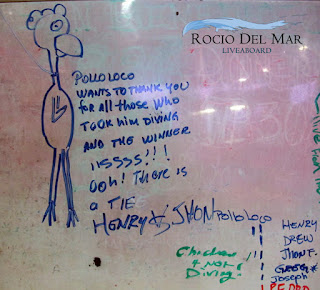 ROCIO DEL MAR
LIVEABOARD
POLLO LOCO
WANTS TO THANK YOU
for all those who
TOOK him DIVING
AND THE WINNER
iissss!!!
Ooh! There is
a TIE
HENRY & JHON POLLO LOCO
Chicken
& not
Diving!
HENRY
DREW
Jhon F.
GEORGE
Joseph
PEDRO